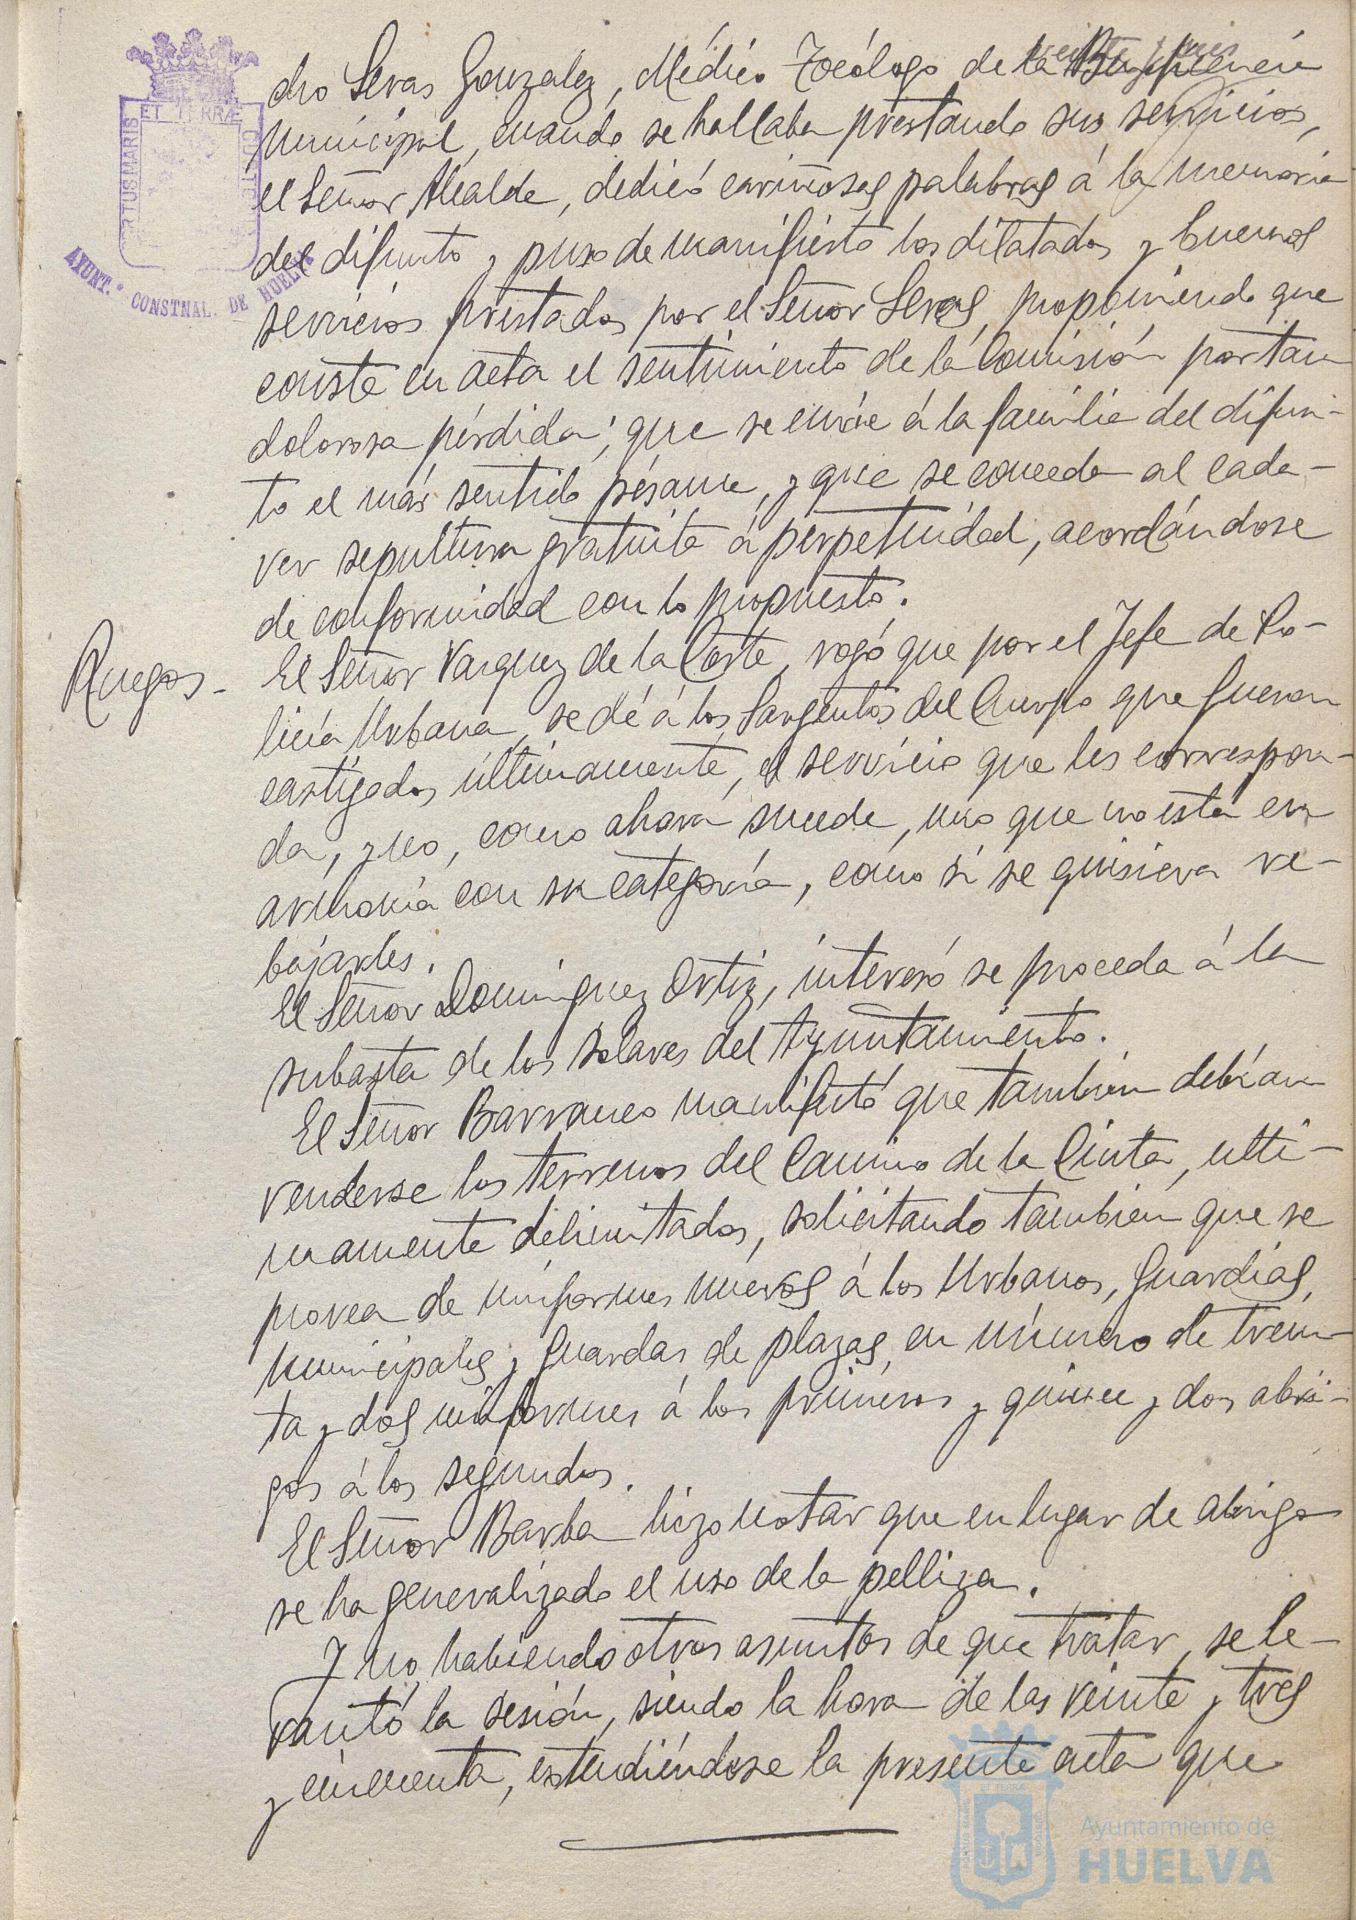 dro Seras Gonzalez, Médico Tocólogo de la Beneficencia
Municipal, cuando se hallaba prestando sus servicios,
el Señor Alcalde, dedicó cariñosas palabras á la memoria
del difunto y puso de manifiesto los dilatados y buenos
servicios prestados por el Señor Seras, proponiendo que
conste en acta el sentimiento de la Comisión por tan
dolorosa pérdida; que se envíe á la familia del difun-
to el más sentido pésame, y que se conceda al cada-
ver sepultura gratuita á perpetuidad, acordándose
de conformidad con lo propuesto.
Ruegos-
El Señor Vazquez de la Corte, rogó que por el Jefe de Po-
licía Urbana, se dé á los Sargentos del Cuerpo que fueron
castigados últimamente, el servicio que les correspon-
da, y no, como ahora sucede, uno que no está en
armonía con su categoría, como si se quisiera re-
bajarles.
El Señor Dominguez Ortiz, interesó se proceda á la
subasta de los solares del Ayuntamiento.
El Señor Barranco manifestó que también debían
venderse los terrenos del Camino de la Cinta, ulti-
mamente delimitados, solicitando también que se
provea de uniformes nuevos á los Urbanos, Guardias,
Municipales y Guardas de plazas, en número de trein-
ta y dos uniformes á los primeros y quince y dos abri-
gos á los segundos.
El Señor Barba hizo notar que en lugar de abrigo
se ha generalizado el uso de la pelliza.
Y no habiendo otros asuntos de que tratar, se le-
vantó la sesión, siendo la hora de las veinte y tres
y cincuenta, extendiéndose la presente acta que
ET TERRÆ
PORTUS MARIS
CUSTODIA
AYUNT.º CONSTNAL. DE HUELVA
Ayuntamiento de
HUELVA